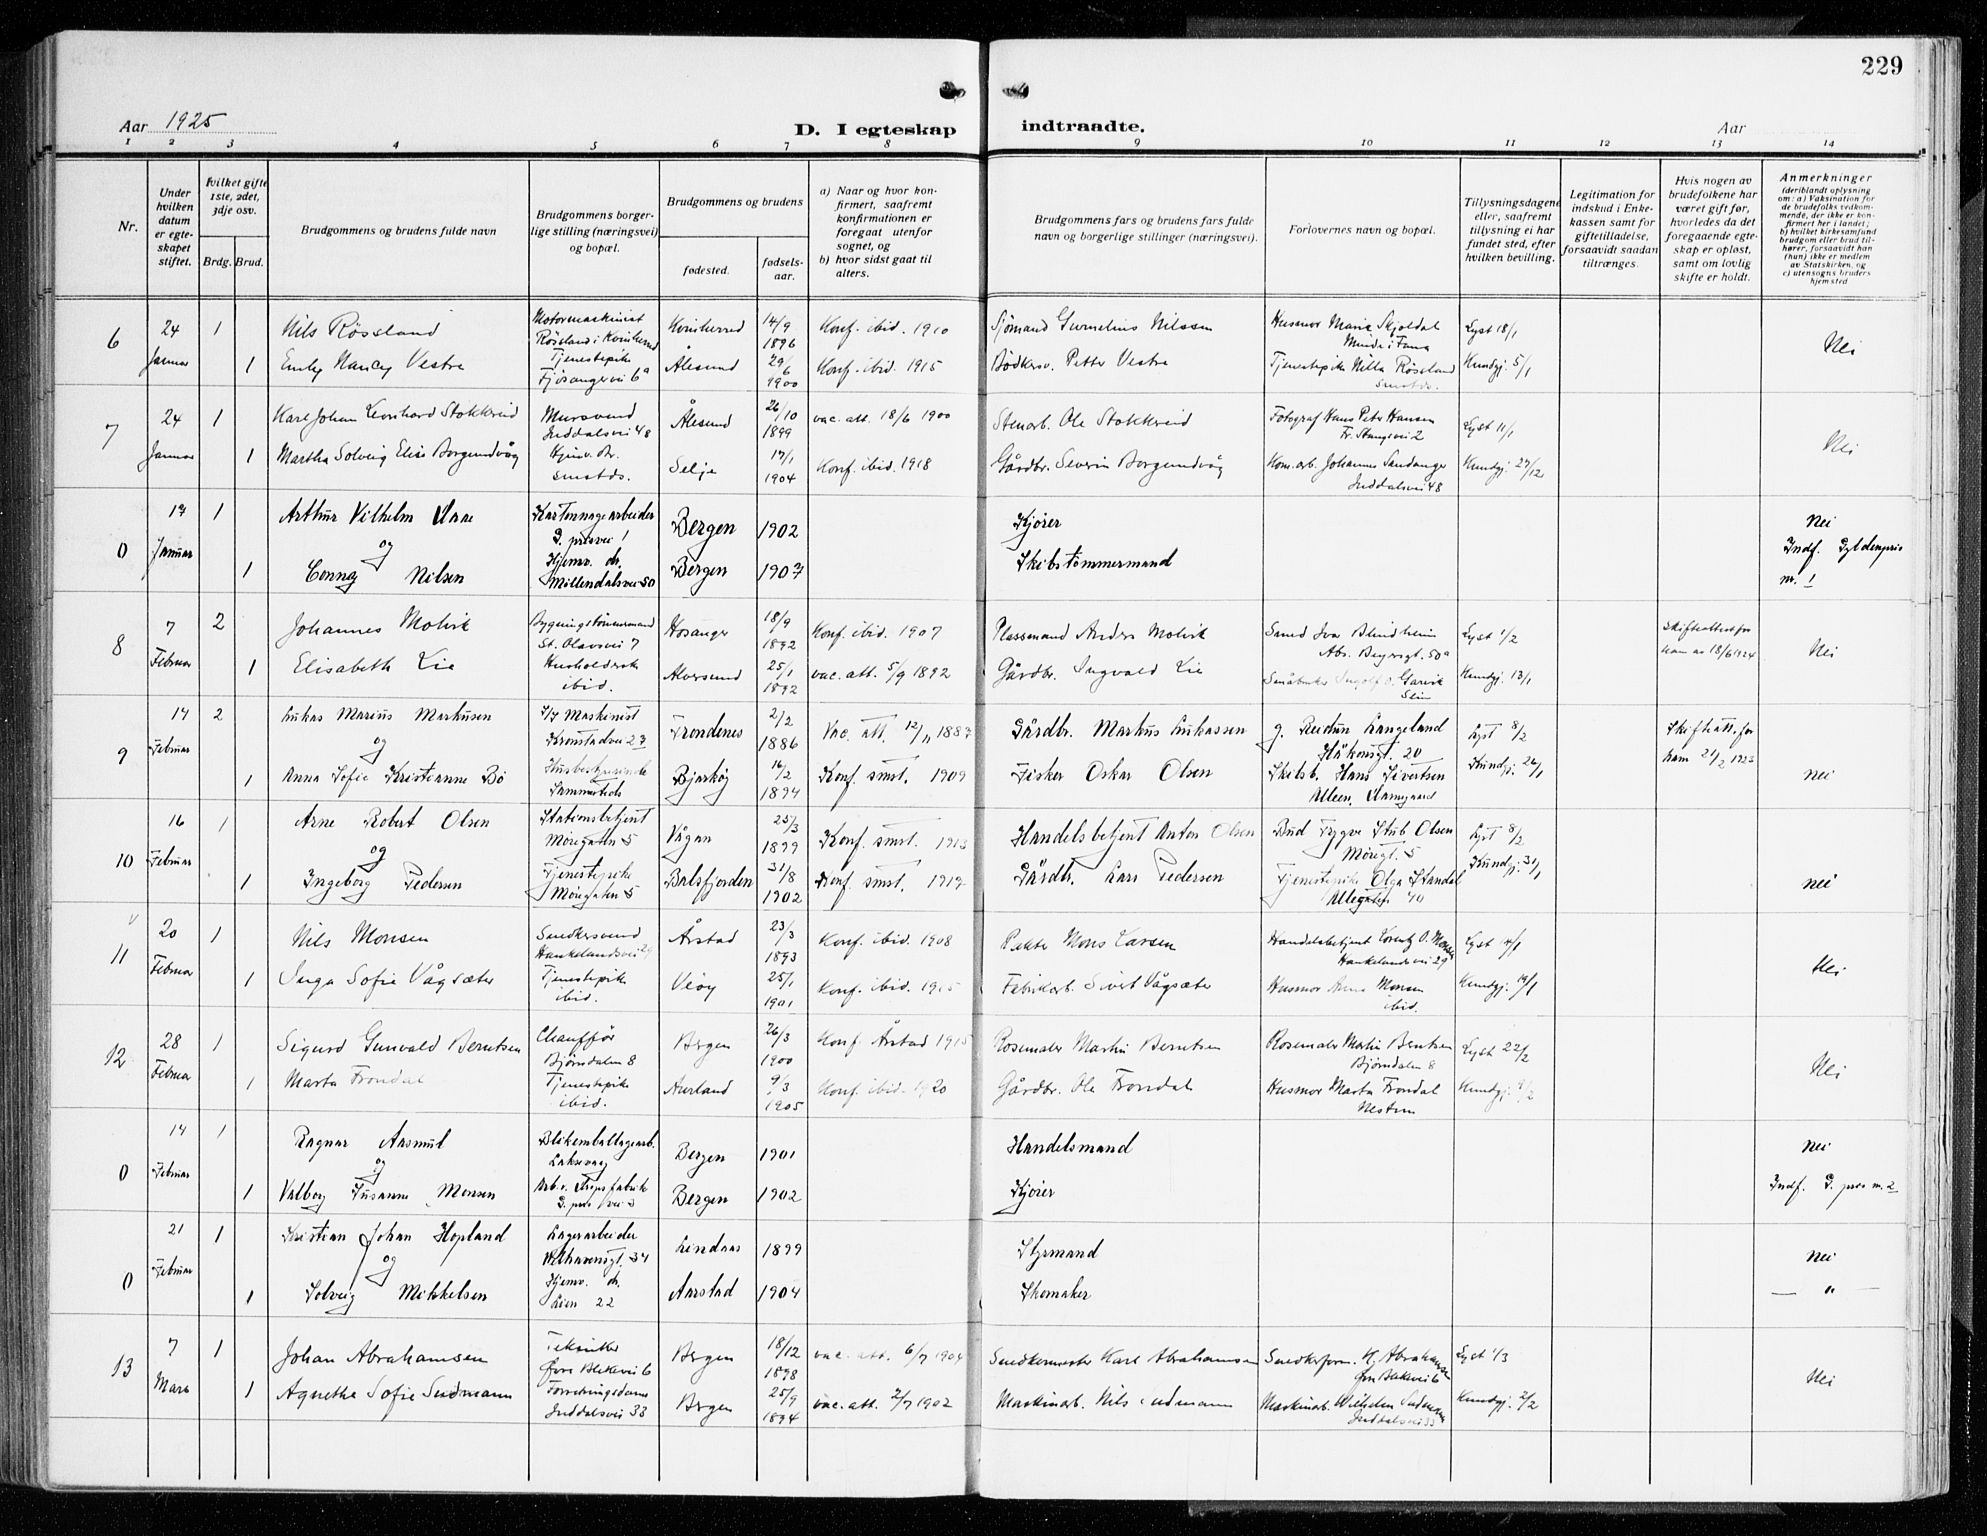 229
Aar 1925
D. I egteskap indtraadte.
Aar
1 2 3 4 5 6 7 8 9 10 11 12 13 14
Nr.
Under hvilken datum er egteskapet stiftet.
Hvilket gifte 1ste, 2det, 3dje osv.
Brdg. Brud.
Brudgommens og brudens fulde navn
Brudgommens borgerlige stilling (næringsvei) og bopæl.
Brudgommens og brudens
fødested.
fødselsaar.
a) Naar og hvor konfirmert, saafremt konfirmationen er foregaat utenfor sognet, og
b) hvor sidst gaat til alters.
Brudgommens fars og brudens fars fulde navn og borgerlige stillinger (næringsvei).
Forlovernes navn og bopæl.
Tillysningsdagene eller, saafremt tillysning ei har fundet sted, efter hvilken bevilling.
Legitimation for indskud i Enkekassen samt for giftetilladelse, forsaavidt saadan tiltrænges.
Hvis nogen av brudefolkene har været gift før, hvorledes da det foregaaende egteskap er opløst, samt om lovlig skifte er holdt.
Anmerkninger
(deriblandt oplysning om: a) Vaksination for de brudefolks vedkommende, der ikke er konfirmert her i landet; b) hvilket kirkesamfund brudgom eller brud tilhører, forsaavidt han (hun) ikke er medlem av Statskirken, og c) utensogns bruders hjemsted
6 24 Januar 1 Nils Røssland Motormaskinist Røssland i Kvinherred Kvinherred 14/9 1896 Konf. ibid. 1910 Sjømand Gurnelius Nilssen Husmor Maria Skjoldal Minde i Fana Lyst 18/1
1 Emly Nancy Vestre Tjenestepike Fjøsangervei 6a Ålesund 29/6 1900 Konf. ibid. 1915 Bødkersv. Petter Vestre Tjenestepike Nilla Røssland smstds. Kundgj. 5/1 Nei
7 24 Januar 1 Karl Johan Leonhard Stokkreid Mursvend Inddalsvei 48 Ålesund 26/10 1899 vac. att. 18/6 1900 Stenarb. Ole Stokkreid Fotograf Hans Peter Hansen Fr. Stangsvei 2 Lyst 11/1
1 Martha Solveig Elise Borgundvåg Hjemv. Dr. smstds. Selje 17/1 1904 Konf. ibid. 1918 Gårdbr. Severin Borgundvåg Kom. arb. Johannes Sandanger Inddalsvei 48 Kundgj. 27/12 Nei
0 17 Januar 1 Arthur Vilhelm Unne Kartonnagearbeider G. presvei 1 Bergen 1902 Kjører Nei
og
1 Conny Nilsen Hjemv. dr. Møllendalsvei 50 Bergen 1907 Skibstømmermand Indf. Gyldenpris nr. 1
8 7 Februar 2 Johannes Molvik Bygningstømmermand St. Olavsvei 7 Hosanger 18/9 1892 Konf. ibid. 1907 Plassmand Anders Molvik Smed Ivar Blindheim Abs. Beyersgt. 50a Lyst 1/2 Skifteattest for ham av 18/6 1924
1 Elisabeth Lie Husholderske ibid. Alversund 25/1 1892 vac. att. 5/9 1892 Gårdbr. Ingvald Lie Småbruker Ingolf O. Garvik Kundgj. 13/1 Nei
9 14 Februar 2 Lukas Marius Markusen S/S Maskinist Kronstadvei 27 Trondenes 2/2 1886 Vac. att. 12/11 1887 Gårdbr. Markus Lukassen g. Reidun Langeland Håkonsgt. 20 Lyst 8/2 Skifteatt. for ham 21/2 1923
og
1 Anna Sofie Kristianne Bø Husbestyrerinde Sammesteds Bjarkøy 16/2 1894 Konf. smst. 1909 Fisker Oskar Olsen Skilsb. Hans Sivertsen Alleen, Aarstad Kundgj. 26/1 Nei
10 16 Februar 1 Arne Robert Olsen Stationsbetjent Møregaten 5 Vågan 25/3 1899 Konf. smst. 1913 Handelsbetjent Anton Olsen Bud Trygve Stub Olsen Møregt. 5 Lyst 8/2
og
1 Ingeborg Pedersen Tjenestepike Møregaten 5 Balsfjorden 31/8 1902 Konf. smst. 1917 Gårdbr. Lars Pedersen Tjenestepike Olga Standal Allegaten 40 Kundgj. 31/1 Nei
11 20 Februar 1 Nils Monsen Snedkersvend Haukelandsvei 29 Årstad 23/3 1893 Konf. ibid. 1908 Pakke Mons Larsen Handelsbetjent Lorentz O. Monsen Haukelandsvei 29 Lyst 4/1
1 Inga Sofie Vågsæter Tjenestepike ibid. Veøy 25/1 1901 Konf. ibid. 1915 Fabrikarb. Sivert Vågsæter Husmor Anna Monsen ibid. Kundgj. 19/1 Nei
12 28 Februar 1 Sigurd Gunvald Berntsen Chauffør Bjørndalen 8 Bergen 26/3 1900 Konf. Årstad 1915 Rosemaler Martin Berntsen Rosemaler Martin Berntsen Bjørndalen 8 Lyst 22/2
1 Marta Frondal Tjenestepike ibid. Aurland 9/3 1905 Konf. ibid. 1920 Gårdbr. Ole Frondal Husmor Marta Frondal Nesttun Kundgj. 9/2 Nei
0 14 Februar 1 Ragnar Aasmul Blikemballagearb. Laksevaag Bergen 1901 Handelsmand Nei
og
1 Valborg Susanne Monsen Arb. v. fabrik G. pris vei 3 Bergen 1902 Kjører Indf. G. pres nr. 2
0 21 Februar 1 Kristian Johan Hopland Lagerarbeider Welhavensgt. 34 Lindaas 1899 Styrmand Nei
og
1 Solveig Mikkelsen Hjemv. dr. Lien 22 Aarstad 1904 Skomaker — " —
13 7 Mars 1 Johan Abrahamsen Tekniker Øvre Blekevei 6 Bergen 18/12 1898 vac. att. 6/7 1904 Snedkermester Karl Abrahamsen Snedkerform. Hj. Abrahamsen Øvre Blekevei 6 Lyst 1/3
1 Agnethe Sofie Sudmann Forretningsdame Inddalsvei 33 Bergen 25/9 1894 vac. att. 2/7 1902 Maskinarb. Nils Sudmann Maskinarb. Wilhelm Sudmann Inddalsvei 33 Kundgj. 2/2 Nei